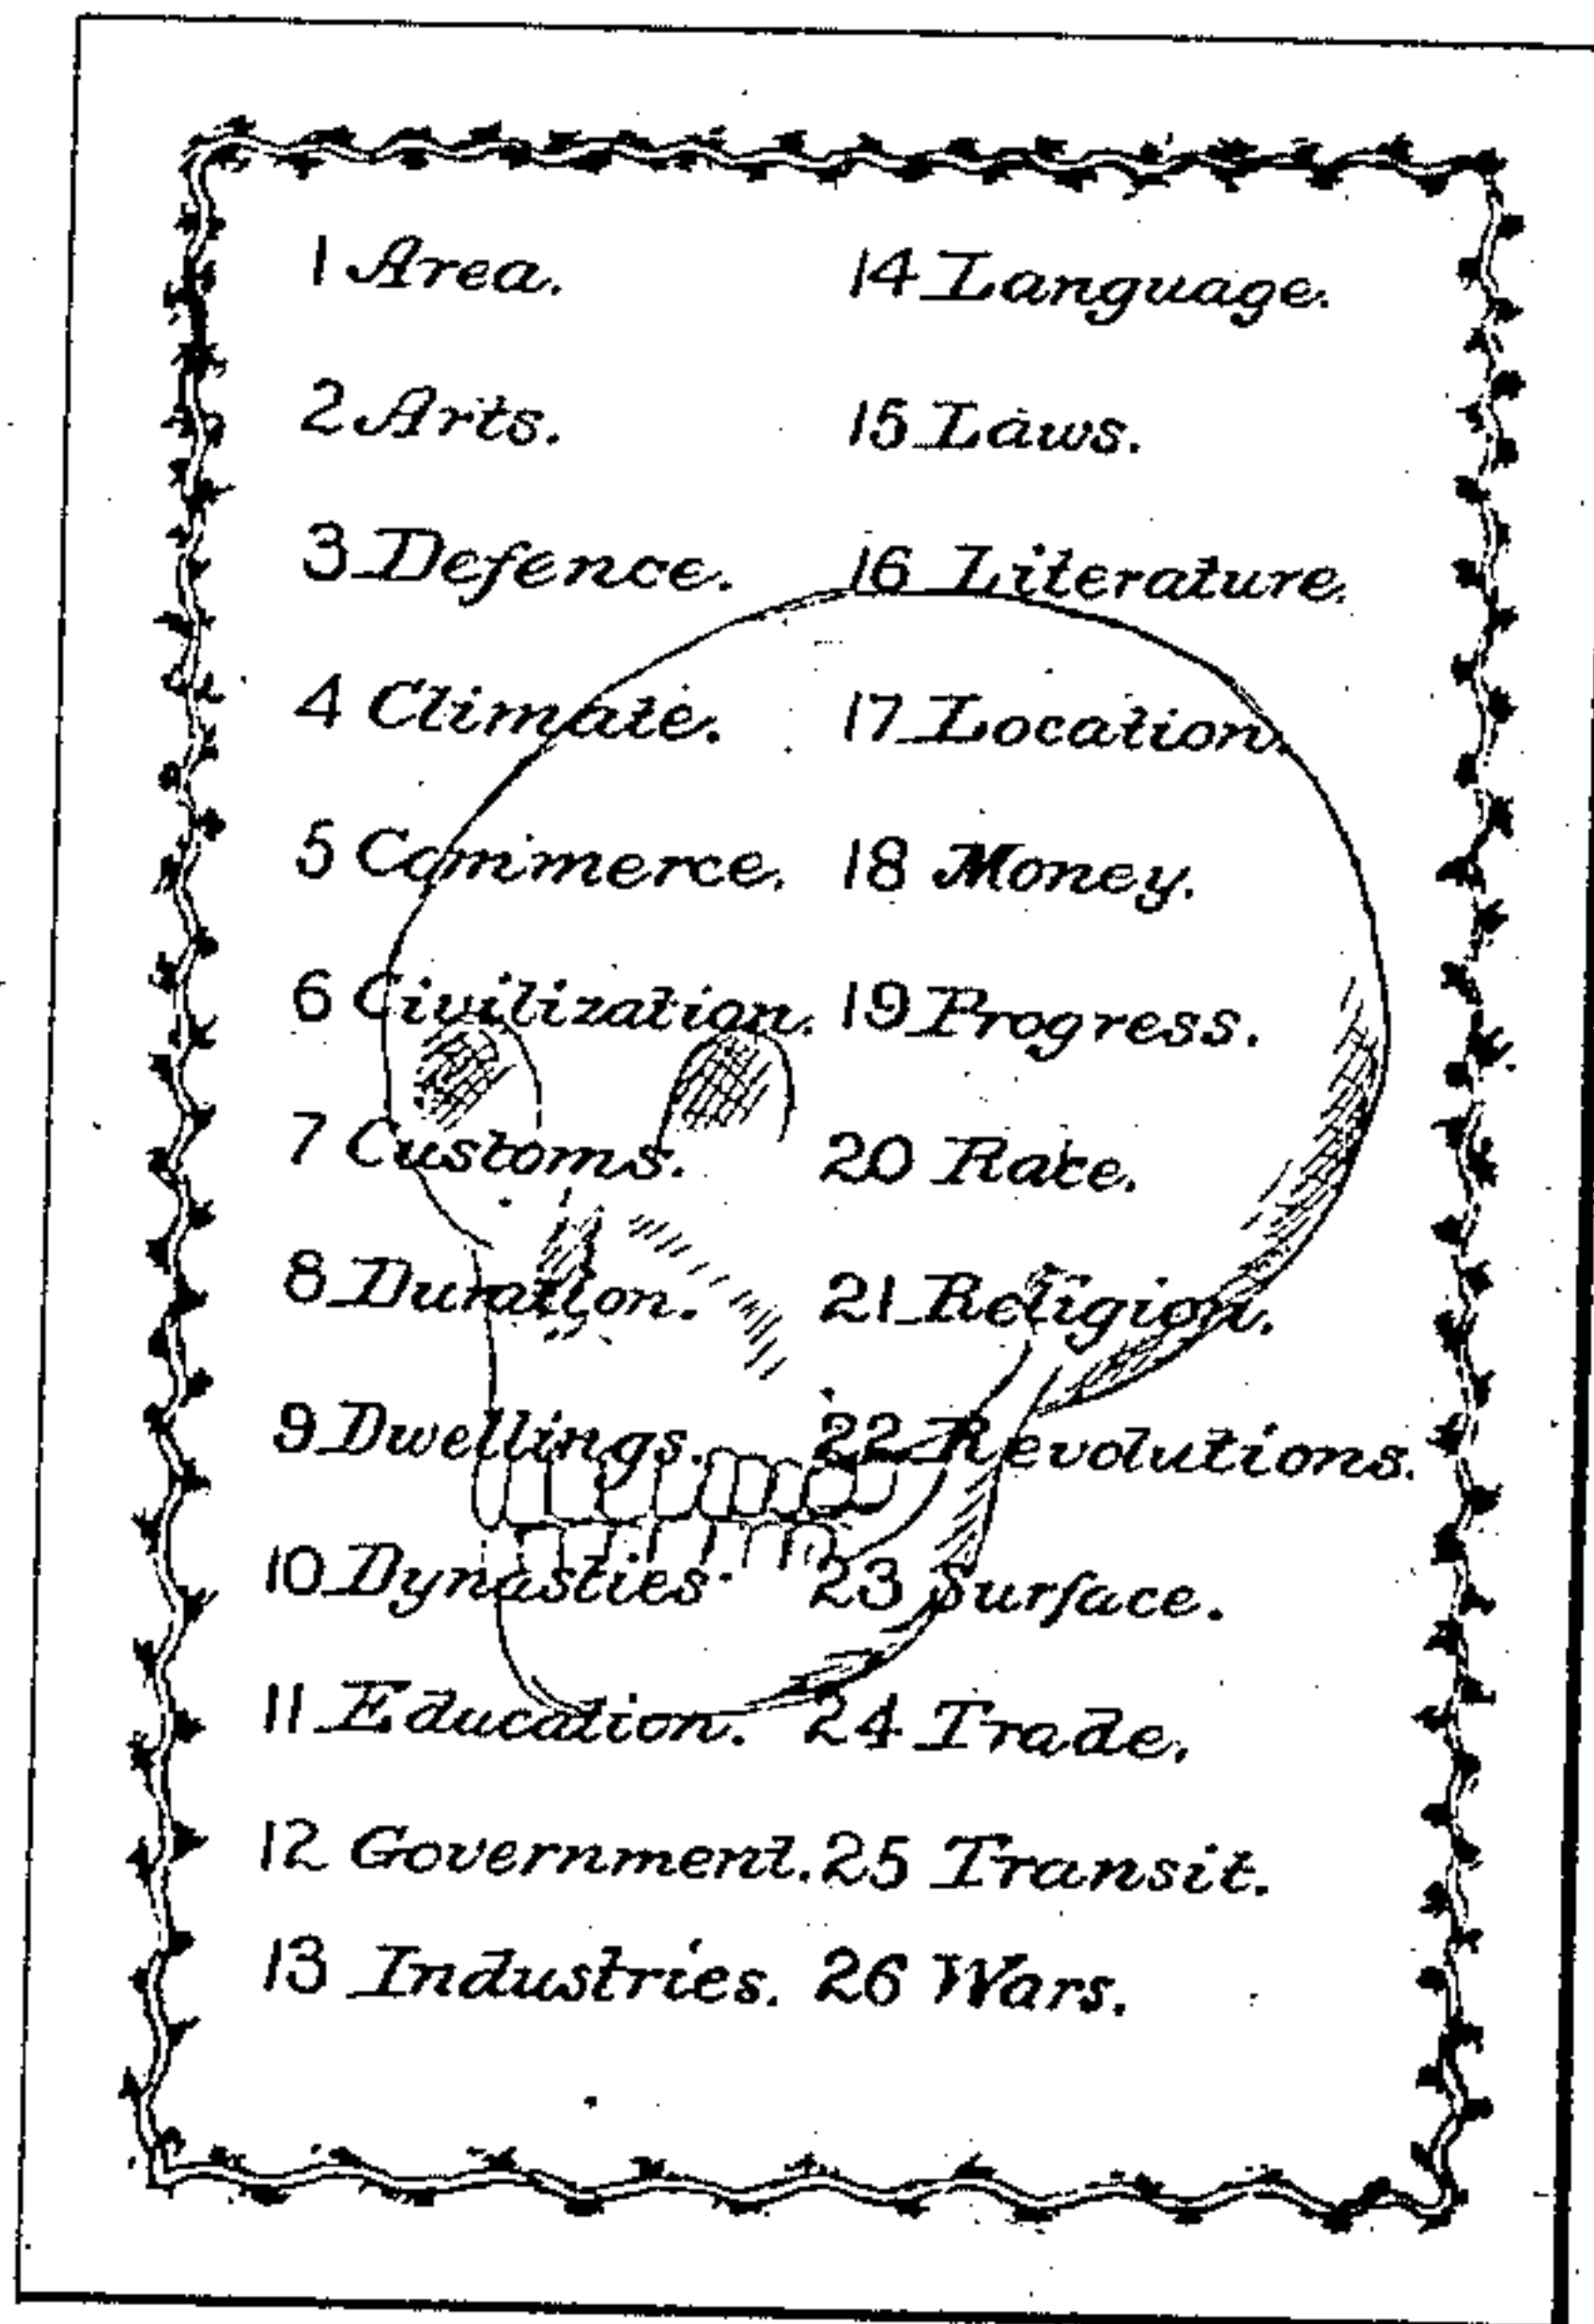 1 Area.
2 Arts.
3 Defence.
4 Climate.
5 Commerce.
6 Civilization.
7 Customs.
8 Duration.
9 Dwellings.
10 Dynasties.
11 Education.
12 Government.
13 Industries.
14 Language.
15 Laws.
16 Literature.
17 Location.
18 Money.
19 Progress.
20 Race.
21 Religion.
22 Revolutions.
23 Surface.
24 Trade.
25 Transit.
26 Wars.